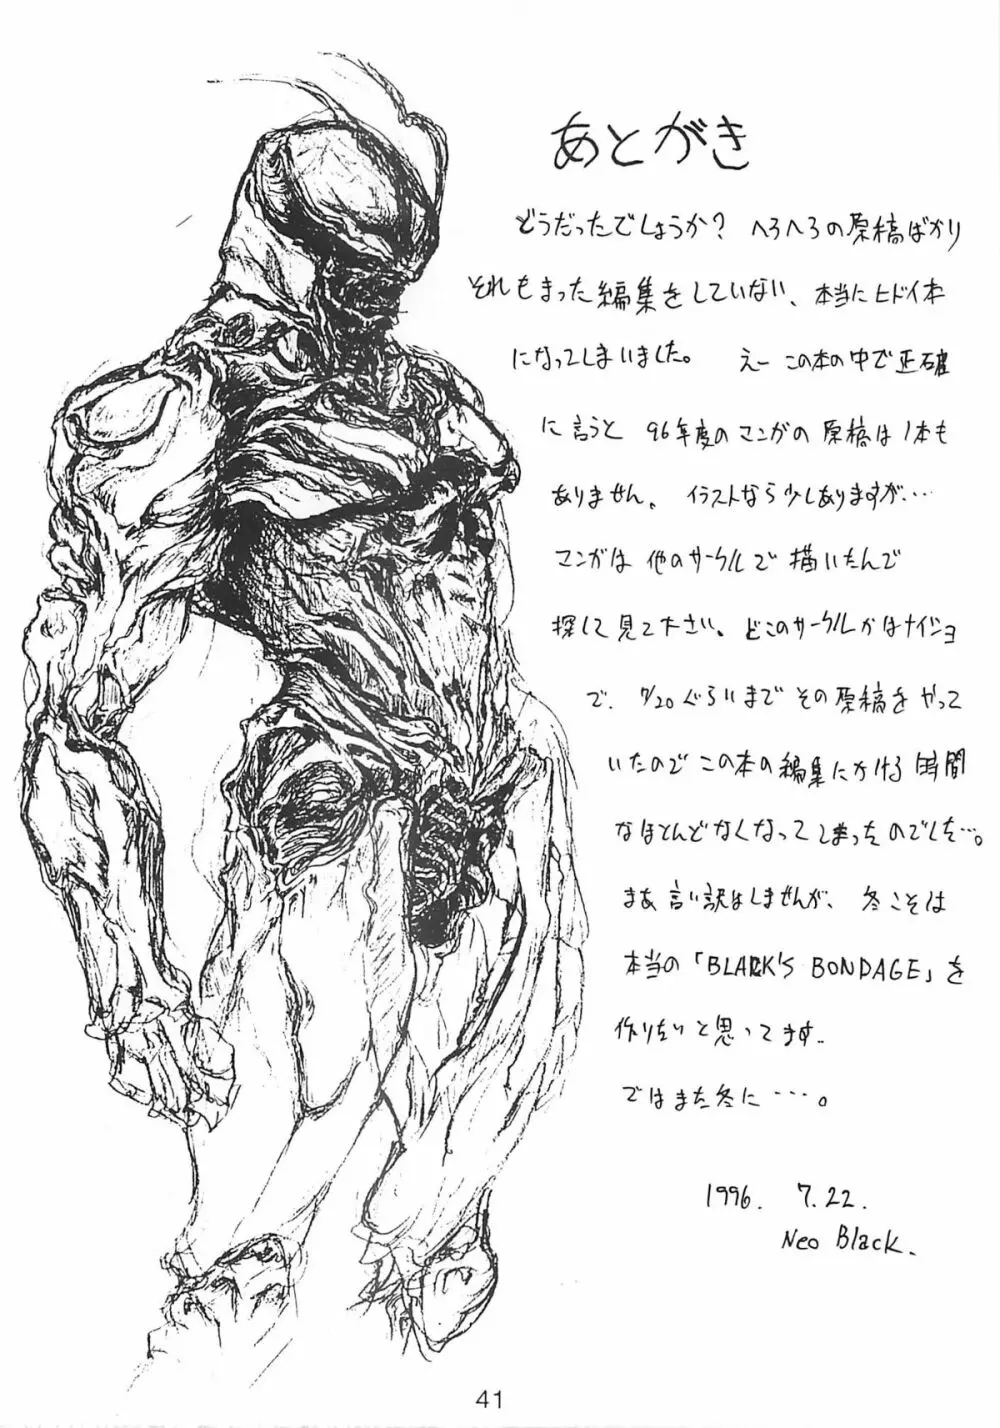 あとがき
どうだったでしょうか? へろへろの原稿ばかり
それもまった編集をしていない、本当にヒドイ本
になってしまいました。 えー この本の中で正確
に言うと 96年度のマンガの原稿は1本も
ありません。 イラストなら少しありますが…
マンガは他のサークルで描いたんで
探して見て下さい。どこのサークルかはナイショ
で、7/20ぐらいまでその原稿をやって
いたのでこの本の編集にかける時間
なほとんどなくなってしまったのでした…。
まあ言い訳はしませんが、冬こそは
本当の「BLACK'S BONDAGE」を
作りたいと思ってます。
ではまた冬に・・・・。
1996. 7.22.
Neo Black.
41